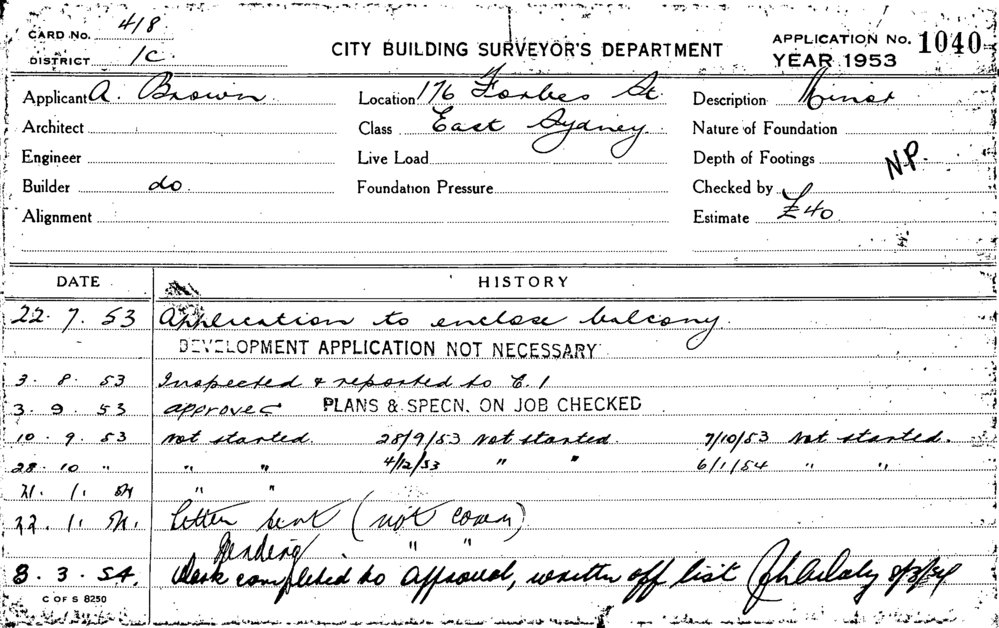 CARD No. 418
DISTRICT 1C.
CITY BUILDING SURVEYOR'S DEPARTMENT
APPLICATION No. 1040
YEAR 1953
Applicant A. Brown Location 176 Forbes St. Description Minor
Architect Class East Sydney. Nature of Foundation
Engineer Live Load Depth of Footings N.P.
Builder do Foundation Pressure Checked by
Alignment Estimate £40
DATE HISTORY
22. 7. 53 Application to enclose balcony
DEVELOPMENT APPLICATION NOT NECESSARY
3. 8. 53 Inspected & reported to C. I
3. 9. 53 approved PLANS & SPECN. ON JOB CHECKED
10. 9. 53 not started. 28/9/53 not started. 7/10/53 not started.
28. 10 " " " 4/12/53 " " 6/1/54 " "
21. 1. 54 " "
22. 1. 54. Letter sent (not comm)
Pending " "
8. 3. 54. Work completed to approval, written off list 8/3/54
C OF S 8250